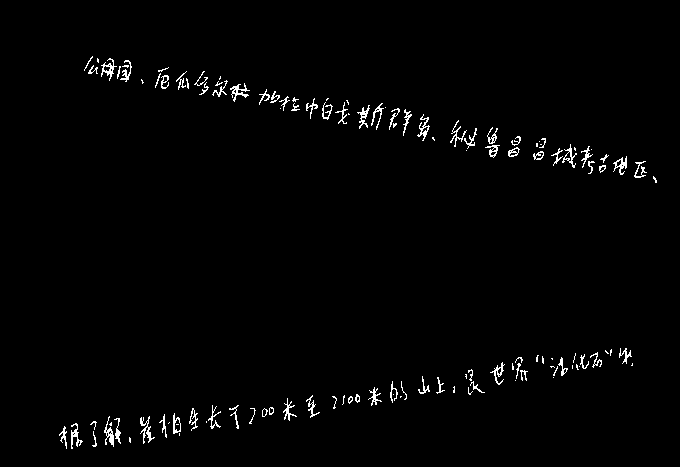 厄瓜多尔加拉帕戈斯群岛、秘鲁昌昌城考古地区、
据了解,崖柏生长于700米至2100米的山上,是世界“活化石”